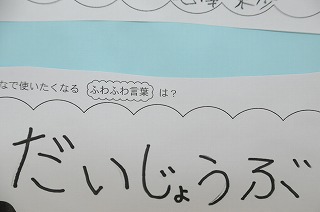 なで使いたくなる ふわふわ言葉 は？
だいじょうぶ